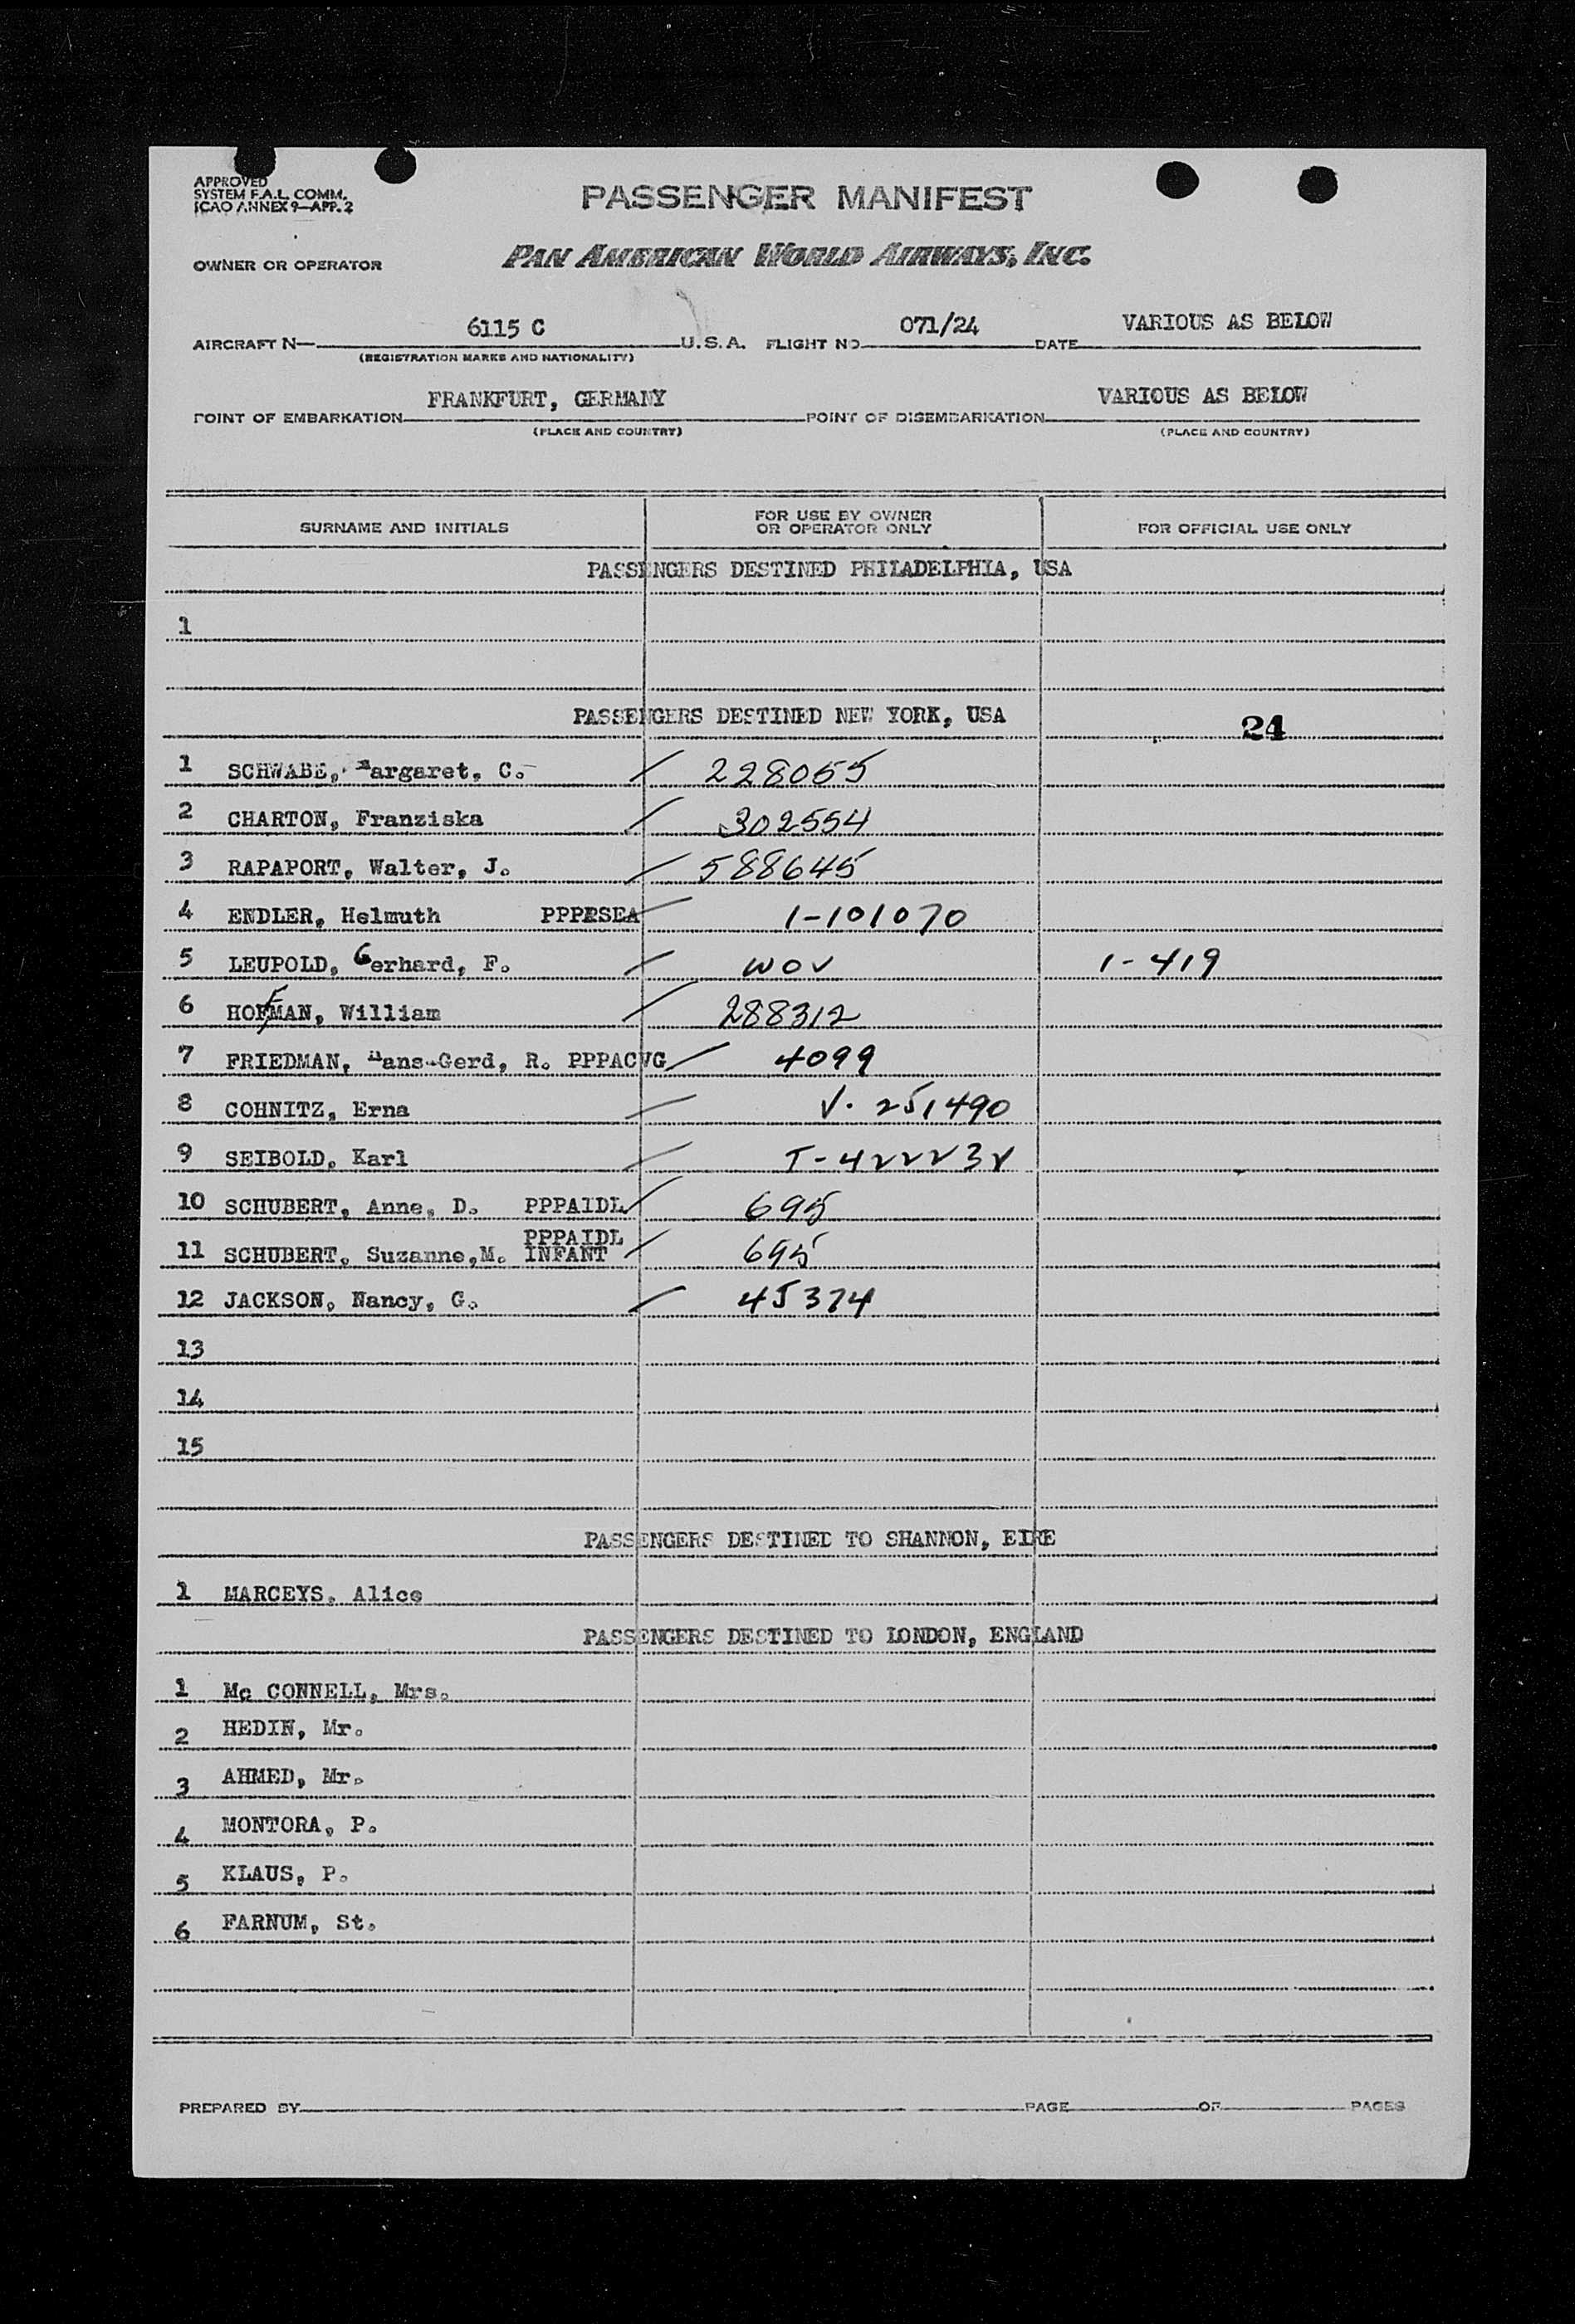 APPROVED
SYSTEM F.A.L. COMM.
ICAO ANNEX 9—APP. 2
PASSENGER MANIFEST
OWNER OR OPERATOR
PAN AMERICAN WORLD AIRWAYS, INC.
AIRCRAFT N— 6115 C U.S.A. FLIGHT NO 071/24 DATE VARIOUS AS BELOW
(REGISTRATION MARKS AND NATIONALITY)
POINT OF EMBARKATION FRANKFURT, GERMANY POINT OF DISEMBARKATION VARIOUS AS BELOW
(PLACE AND COUNTRY) (PLACE AND COUNTRY)
SURNAME AND INITIALS FOR USE BY OWNER OR OPERATOR ONLY FOR OFFICIAL USE ONLY
PASSENGERS DESTINED PHILADELPHIA, USA
1
PASSENGERS DESTINED NEW YORK, USA 24
1 SCHWABE, Margaret, C. / 228055
2 CHARTON, Franziska / 302554
3 RAPAPORT, Walter, J. / 588645
4 ENDLER, Helmuth PPPRSEA / 1-101070
5 LEUPOLD, Gerhard, F. / WOV 1-419
6 HOFFMAN, William / 288312
7 FRIEDMAN, Hans-Gerd, R. PPPACVG / 4099
8 COHNITZ, Erna / V. 251490
9 SEIBOLD, Karl / T-422232
10 SCHUBERT, Anne, D. PPPAIDL / 695
11 SCHUBERT, Suzanne,M. PPPAIDL INFANT / 695
12 JACKSON, Nancy, G. / 45374
13
14
15
PASSENGERS DESTINED TO SHANNON, EIRE
1 MARCEYS, Alice
PASSENGERS DESTINED TO LONDON, ENGLAND
1 Mc CONNELL, Mrs.
2 HEDIN, Mr.
3 AHMED, Mr.
4 MONTORA, P.
5 KLAUS, P.
6 FARNUM, St.
PREPARED BY PAGE OF PAGES